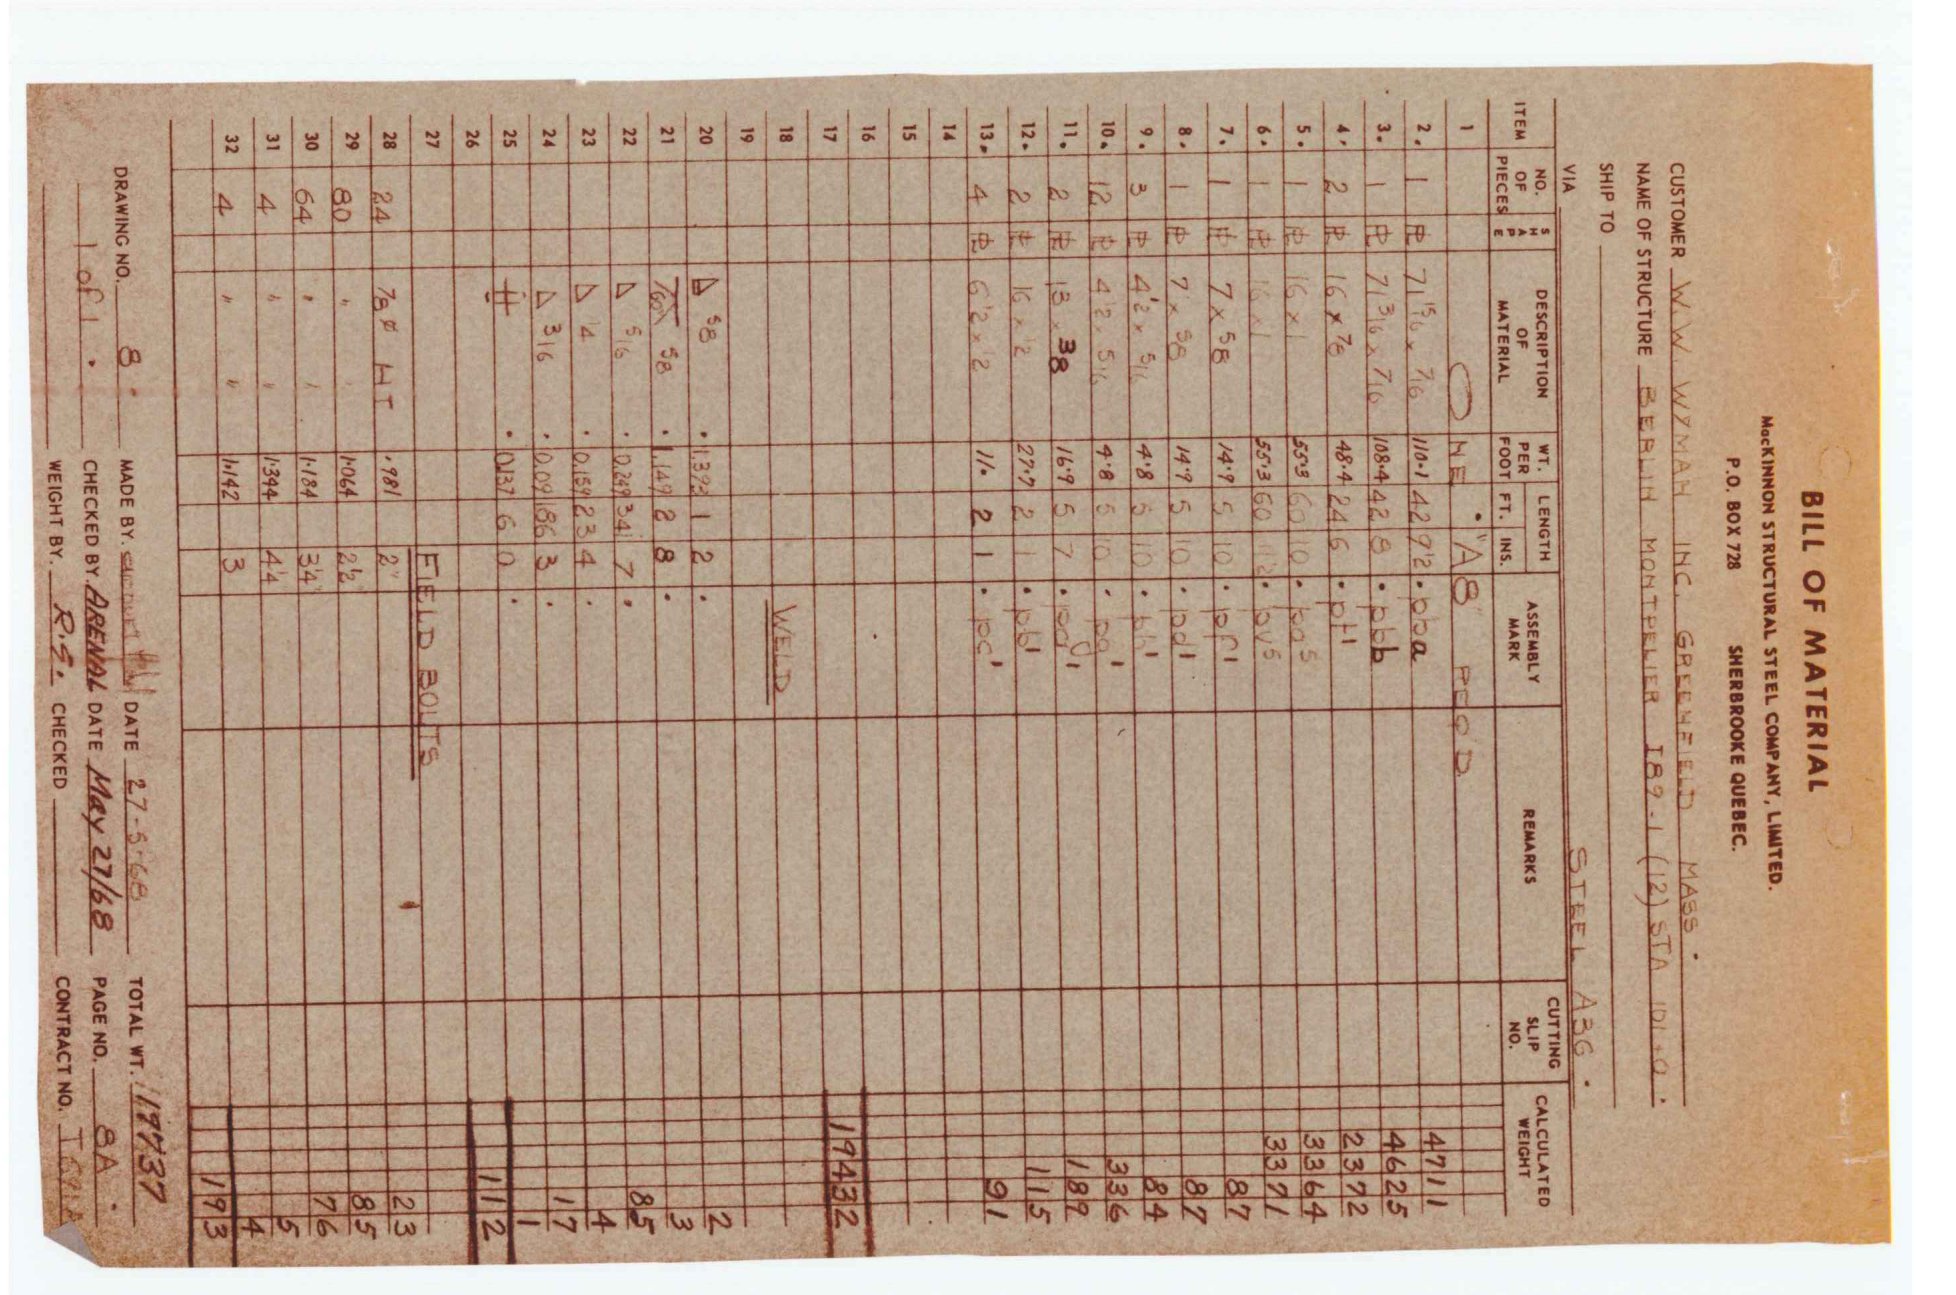 BILL OF MATERIAL
MacKINNON STRUCTURAL STEEL COMPANY, LIMITED.
P.O. BOX 728 SHERBROOKE QUEBEC.
CUSTOMER W.W WYMAN INC. GREENFIELD MASS.
NAME OF STRUCTURE BERLIN MONTPELIER I89-1 (12) STA 101+0.
SHIP TO
VIA STEEL A36.
ITEM NO. OF PIECES SHAPE DESCRIPTION OF MATERIAL WT. PER FOOT LENGTH FT. INS. ASSEMBLY MARK REMARKS CUTTING SLIP NO. CALCULATED WEIGHT
1 ONE "A8" REQ'D
2. 1 PL 71 15/16 x 7/16 110.1 42 9 1/2 . pba 4711
3. 1 PL 71 3/16 x 7/16 108.4 42 8 . pbb 4625
4. 2 PL 16 x 7/8 48.4 24 6 . pt1 2372
5. 1 PL 16 x 1 55.3 60 10 . pa5 3364
6. 1 PL 16 x 1 55.3 60 11 1/2 . pv5 3371
7. 1 PL 7 x 5/8 14.9 5 10 . pf1 87
8. 1 PL 7 x 5/8 14.9 5 10 . pd1 87
9. 3 PL 4 1/2 x 5/16 4.8 5 10 . ph1 84
10. 12 PL 4 1/2 x 5/16 4.8 5 10 . pa1 336
11. 2 PL 13 x 3/8 16.9 5 7 . pg1 189
12. 2 PL 16 x 1/2 27.7 2 1 . pb1 115
13. 4 PL 6 1/2 x 1/2 11. 2 1 . pc1 91
14
15
16
17 19432
18 WELD
19
20 △ 5/8 . 1.393 1 2 . 2
21 5/8 . 1.149 2 8 . 3
22 △ 5/16 . 0.249 341 7 . 85
23 △ 1/4 . 0.159 23 4 . 4
24 △ 3/16 . 0.09 186 3 . 17
25 . 0.137 6 0 . 1
26 112
27 FIELD BOLTS
28 24 7/8 ø HT .981 2" 23
29 80 " " 1.064 2 1/2" 85
30 64 " " 1.184 3 1/4" 76
31 4 " " 1.344 4 1/4 5
32 4 " " 1.142 3 4
193
DRAWING NO. 8. MADE BY. DATE 27-5-68 TOTAL WT. 19737
1 of 1. CHECKED BY. ARENAL DATE May 27/68 PAGE NO. 8A.
WEIGHT BY. R.S. CHECKED CONTRACT NO.